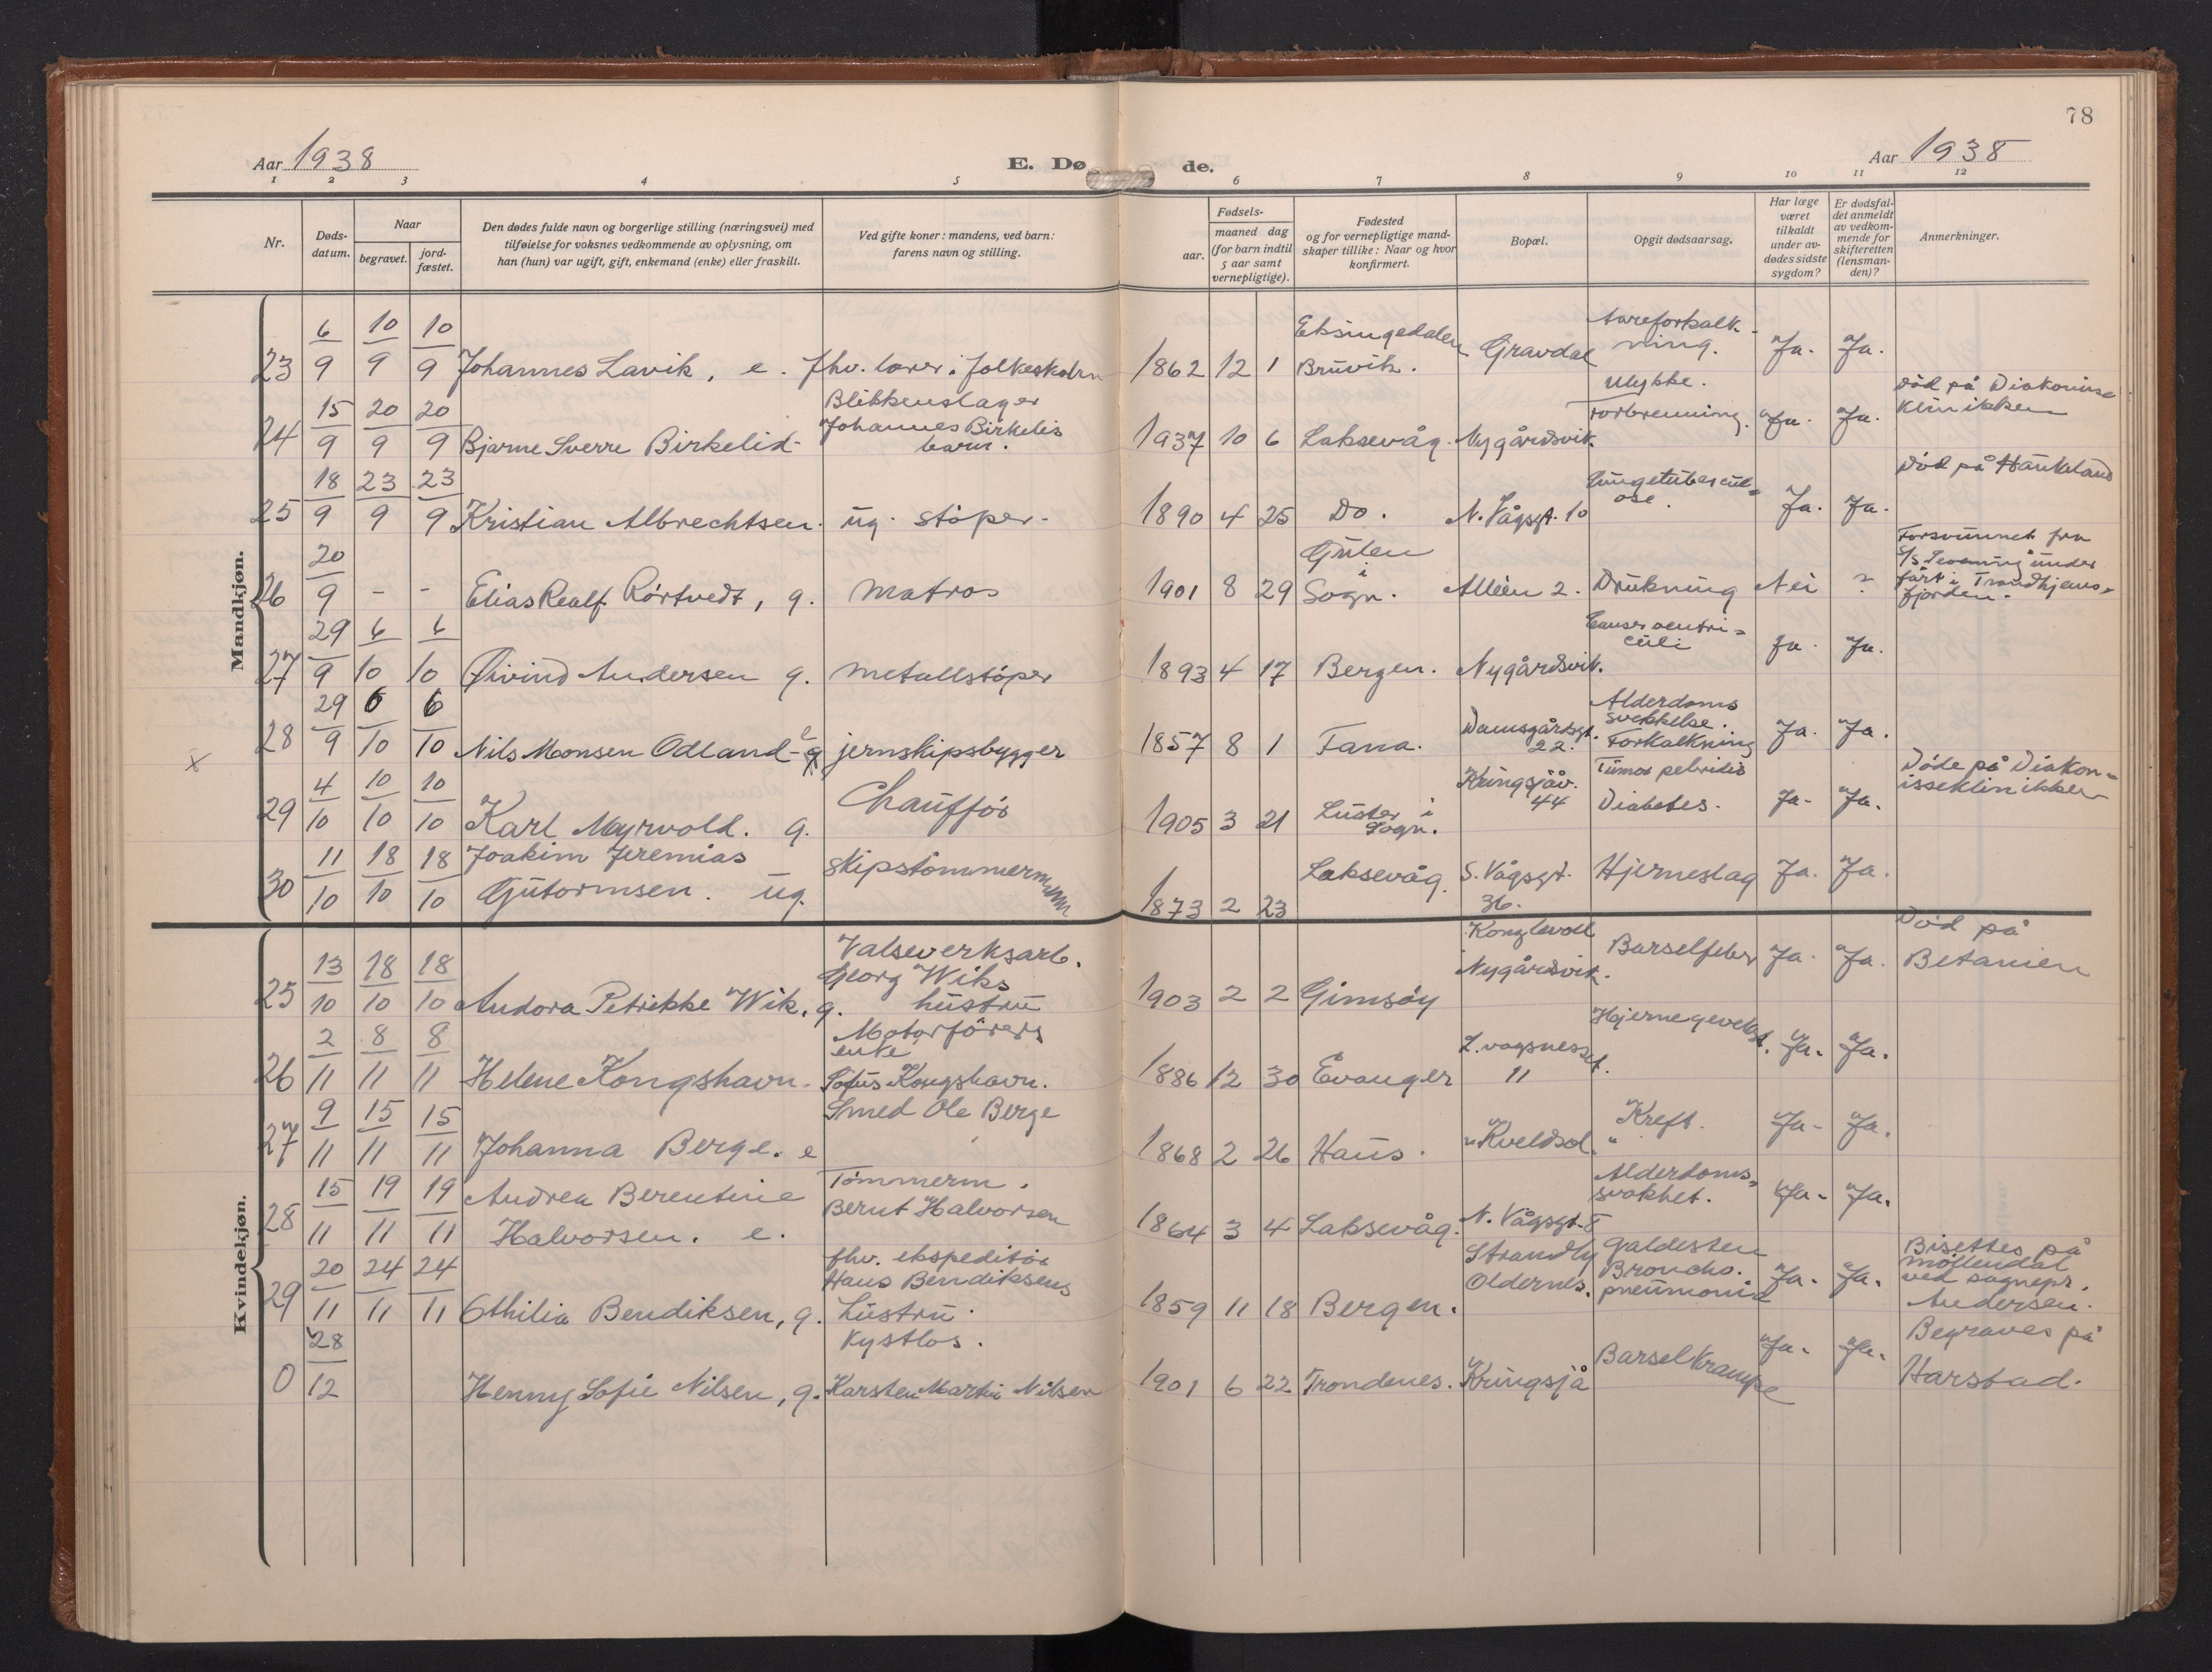 78
Aar 1938 E. Dø de. Aar 1938
1 2 3 4 5 6 7 8 9 10 11 12
Nr.
Døds-
datum.
Naar
begravet.
jord-
fæstet.
Den dødes fulde navn og borgerlige stilling (næringsvei) med
tilføielse for voksnes vedkommende av oplysning, om
han (hun) var ugift, gift, enkemand (enke) eller fraskilt.
Ved gifte koner: mandens, ved barn:
farens navn og stilling.
Fødsels-
aar.
maaned dag
(for barn indtil
5 aar samt
vernepligtige).
Fødested
og for vernepligtige mand-
skaper tillike: Naar og hvor
konfirmert.
Bopæl.
Opgit dødsaarsag.
Har læge
været
tilkaldt
under av-
dødes sidste
sygdom?
Er dødsfal-
det anmeldt
av vedkom-
mende for
skifteretten
(lensman-
den)?
Anmerkninger.
Mandkjøn.
23 6/9 10/9 10/9 Johannes Lavik, e. fhv. lærer i folkeskolen 1862 12 1 Eksingedalen
Bruvik. Gravdal Aareforkalk-
ning. Ja. Ja.
24 15/9 20/9 20/9 Bjarne Sverre Birkelid- Blikkenslager
Johannes Birkelis
barn. 1937 10 6 Laksevåg. Nygårdsvik. Ulykke.
Forbrenning. Ja. Ja. Död på Diakonisse
klinikken
25 18/9 23/9 23/9 Kristian Albrechtsen. ug. stöper. 1890 4 25 Do. N. Vågsgt. 10 Lungetubercul=
ose. Ja. Ja. Död på Haukeland
26 20/9 - - Elias Realf Rörtvedt, g. Matros 1901 8 29 Gulen
i
Sogn. Alléen 2. Drukning Nei ? Forsvunnet fra
S/S under
fart i Trondhjems=
fjorden.
27 29/9 6/10 6/10 Øivind Andersen g. Metallstöper 1893 4 17 Bergen. Nygårdsvik. Canser ventri=
culi Ja. Ja.
28 29/9 6/10 6/10 Nils Monsen Odland- e g jernskipsbygger 1857 8 1 Fana. Damsgårdsgt.
22. Alderdoms
svekkelse.
Forkalkning Ja. Ja.
x
29 4/10 10/10 10/10 Karl Myrvold. g. Chaufför 1905 3 21 Luster i
Sogn. Kringsjåv.
44 Tumor pelvidis
Diabetes. Ja- Ja. Döde på Diakon=
isseklinikken
30 11/10 18/10 18/10 Joakim Jeremias
Gutormsen. ug. skipstömmermann 1873 2 23 Laksevåg. S. Vågsgt.
36. Hjerneslag Ja. Ja.
Kvindekjøn.
25 13/10 18/10 18/10 Andora Petrikke Wik, g. Valseverksarb.
Georg Wiks
hustru 1903 2 2 Gimsöy Konglevoll
Nygårdsvik. Barselfeber Ja. Ja. Död på
Betanien
26 2/11 8/11 8/11 Helene Kongshavn. Motorförers
enke
Sofus Kongshavn. 1886 12 30 Evanger L.vagnesset.
11 Hjernegevekst. Ja. Ja.
27 9/11 15/11 15/11 Johanna Berge. e Smed Ole Berge 1868 2 26 Haus. "Kveldsol" Kreft. Ja- Ja.
28 15/11 19/11 19/11 Andrea Berentine
Halvorsen. e. Tömmerm.
Bernt Halvorsen 1864 3 4 Laksevåg. N. Vågsgt. 8 Alderdoms=
svakhet. Ja- Ja.
29 20/11 24/11 24/11 Othilia Bendiksen, g. fhv. ekspeditör
Hans Bendiksens
hustru. 1859 11 18 Bergen. Strandly
Oldernes. Galdesten
Broncho.
pneumonia Ja- Ja. Bisettes på
Möllendal
ved sognepr.
Andersen.
0 28/12 Henny Sofie Nilsen, g. Kystlos.
Karsten Martin Nilsen 1901 6 22 Trondenes. Kringsjå Barselkrampe Ja. Ja. Begraves på
Harstad.